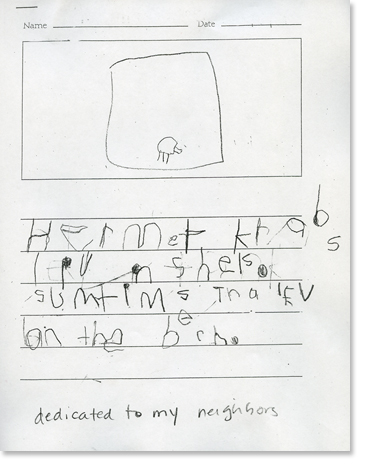 Name Date
Hermet krabs
lev in shels.
sumtims Tha lEV
on the bech.
dedicated to my neighbors